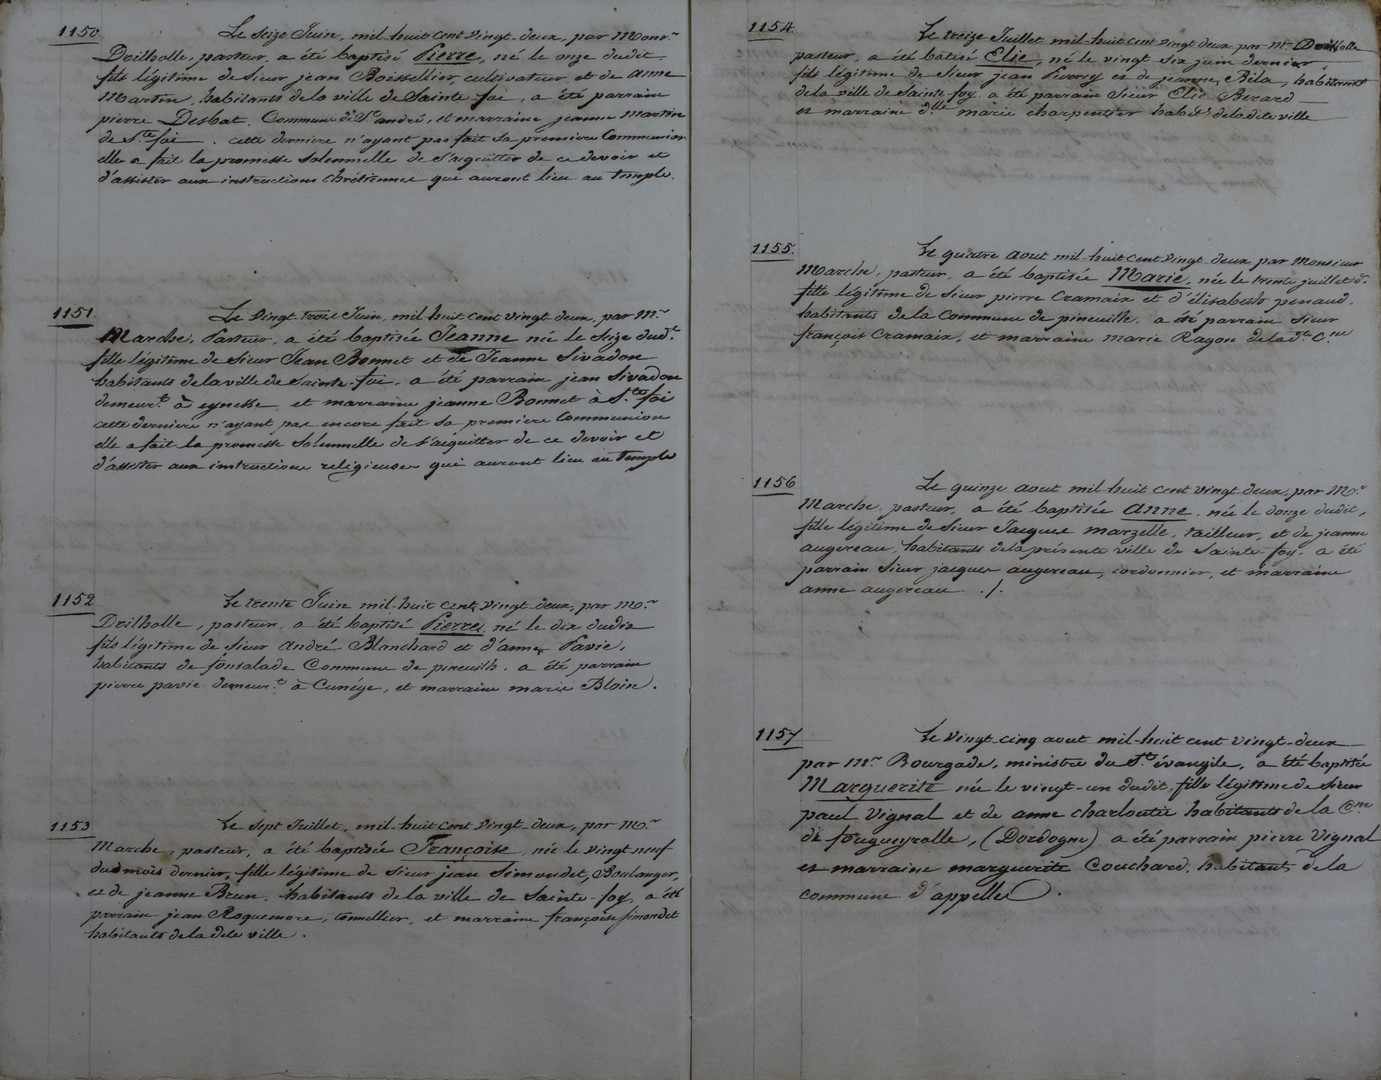 1150
Le Seize Juin, mil-huit cent vingt-deux, par Monr.
Drilholle, pasteur, a été baptisé Pierre, né le onze dudit
fils légitime de Sieur jean Boissellier, cultivateur, et de anne
Martin, habitants de la ville de Sainte-foi, a été parrain
pierre Desbat, Commune de St. andré, et marraine jeanne Martin
de Ste foi. cette derniere n'ayant pas fait sa premiere Communion
elle a fait la promesse Solennelle de s'acquitter de ce devoir et
d'assister aux instructions chrétiennes qui auront lieu au temple.
1151
Le Vingt-trois Juin, mil-huit cent vingt deux, par Mr.
Marche, Pasteur, a été baptisée Jeanne né le Seize dudt.
fille légitime de Sieur Jean Bonnet et de Jeanne Sivadon
habitants de la ville de Sainte-foi, a été parrain jean Sivadon
demeurt. à eynesse, et marraine jeanne Bonnet à Ste foi
cette derniere n'ayant pas encore fait sa premiere Communion
elle a fait la promesse Solennelle de s'acquitter de ce devoir et
d'assister aux instructions religieuses qui auront lieu au Temple
1152
Le trente Juin mil-huit cent vingt-deux, par Mr.
Drilholle, pasteur, a été baptisé Pierre, né le dix dudit
fils légitime de Sieur André Blanchard et d'anne Pavie,
habitants de fonsalade Commune de pineuilh, a été parrain
pierre pavie demeurt. à Cunége, et marraine marie Bloin.
1153
Le Sept Juillet, mil-huit cent vingt-deux, par Mr.
Marche, pasteur, a été baptisée Françoise, née le vingt neuf
du mois dernier, fille légitime de Sieur jean Simondet, Boulanger,
et de jeanne Brun, habitants de la ville de Sainte-foy, a été
parrain jean Roquemore, tonnellier, et marraine françoise simondet
habitants de la dete ville.
1154
Le treize Juillet mil-huit cent vingt deux par Mr Drilholle
pasteur, a été batisé Elie, né le vingt six juin dernier
fils légitime de Sieur jean Pierrey et de jeanne Bila, habitants
de la ville de Sainte foy a été parrain Sieur Elie Berard
et marraine dlle marie charpentier habts de la dite ville
1155.
Le quatre aout mil-huit cent vingt-deux par Monsieur
Marche, pasteur, a été baptisée Marie, née le trente juillet dr.
fille légitime de Sieur pierre Cramaix et d'élisabeth penaud,
habitants de la Commune de pineuilh, a été parrain Sieur
françois Cramaix, et marraine marie Rayon de la dte Cne
1156
Le quinze aout mil-huit cent vingt deux, par Mr.
Marche, pasteur, a été baptisée Anne, née le douze dudit,
fille légitime de Sieur Jacques marzelle, tailleur, et de jeanne
augereau, habitants de la présente ville de Sainte-foy, a été
parrain Sieur jacques augereau, cordonnier, et marraine
anne augereau ./.
1157
Le vingt-cinq aout mil-huit cent vingt-deux
par Mr. Bourgade, ministre du St. évangile, a été baptisée
Marguerite née le vingt-un dudit, fille légitime de Sieur
paul vignal et de anne charloutie habitants de la Cne
de fougueyrolle, (Dordogne) a été parrain pierre vignal
et marraine marguerite Couchard, habitants de la
commune d'appelles.